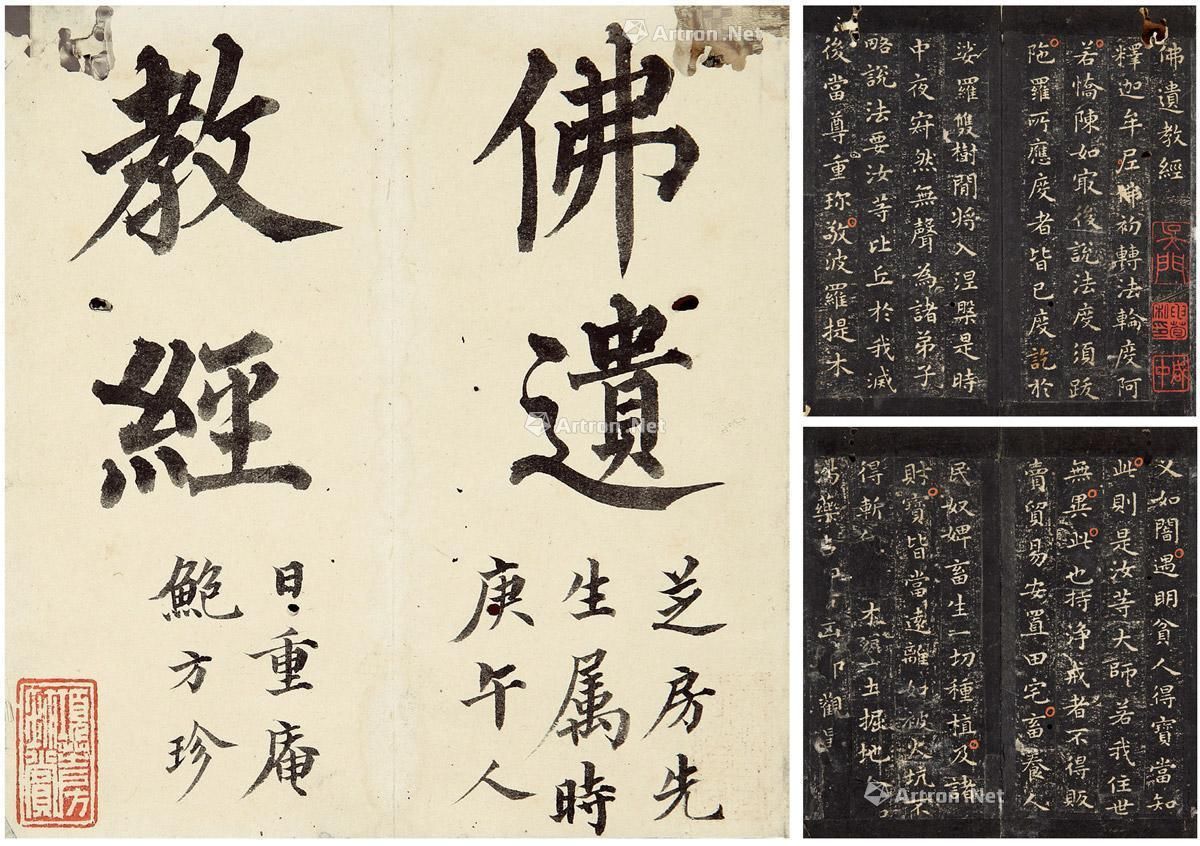 佛遺
教經
芝房先
生属時
庚午人
日重庵
鮑方珍
佛遺教經
釋迦牟尼佛初轉法輪度阿
若憍陳如最後說法度須跋
陁羅所應度者皆已度訖於
娑羅雙樹間將入涅槃是時
中夜寂然無聲為諸弟子
略說法要汝等比丘於我滅
後當尊重珎敬波羅提木
吳門
又如闇遇明貧人得寶當知
此則是汝等大師若我住世
無異此也持淨戒者不得販
賣貿易安置田宅畜養人
民奴婢畜生一切種植及諸
財寶皆當遠離如避火坑不
得斬 土掘地
Artron.Net
Artron.Net
Artron.Net
Artron.Net